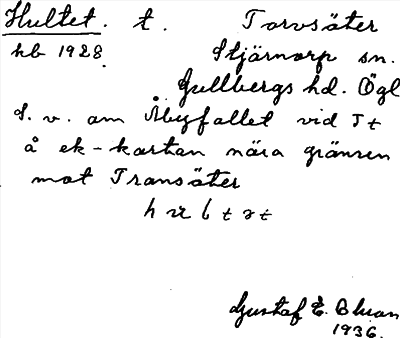 Hultet. t. Torvsäter
kb 1928. Stjärnorp sn.
Gullbergs hd. Ögl
S. v. om Åbyfallet vid T t
å ek-kartan nära gränsen
mot Transäter
Gustaf E. Bluan
1936.